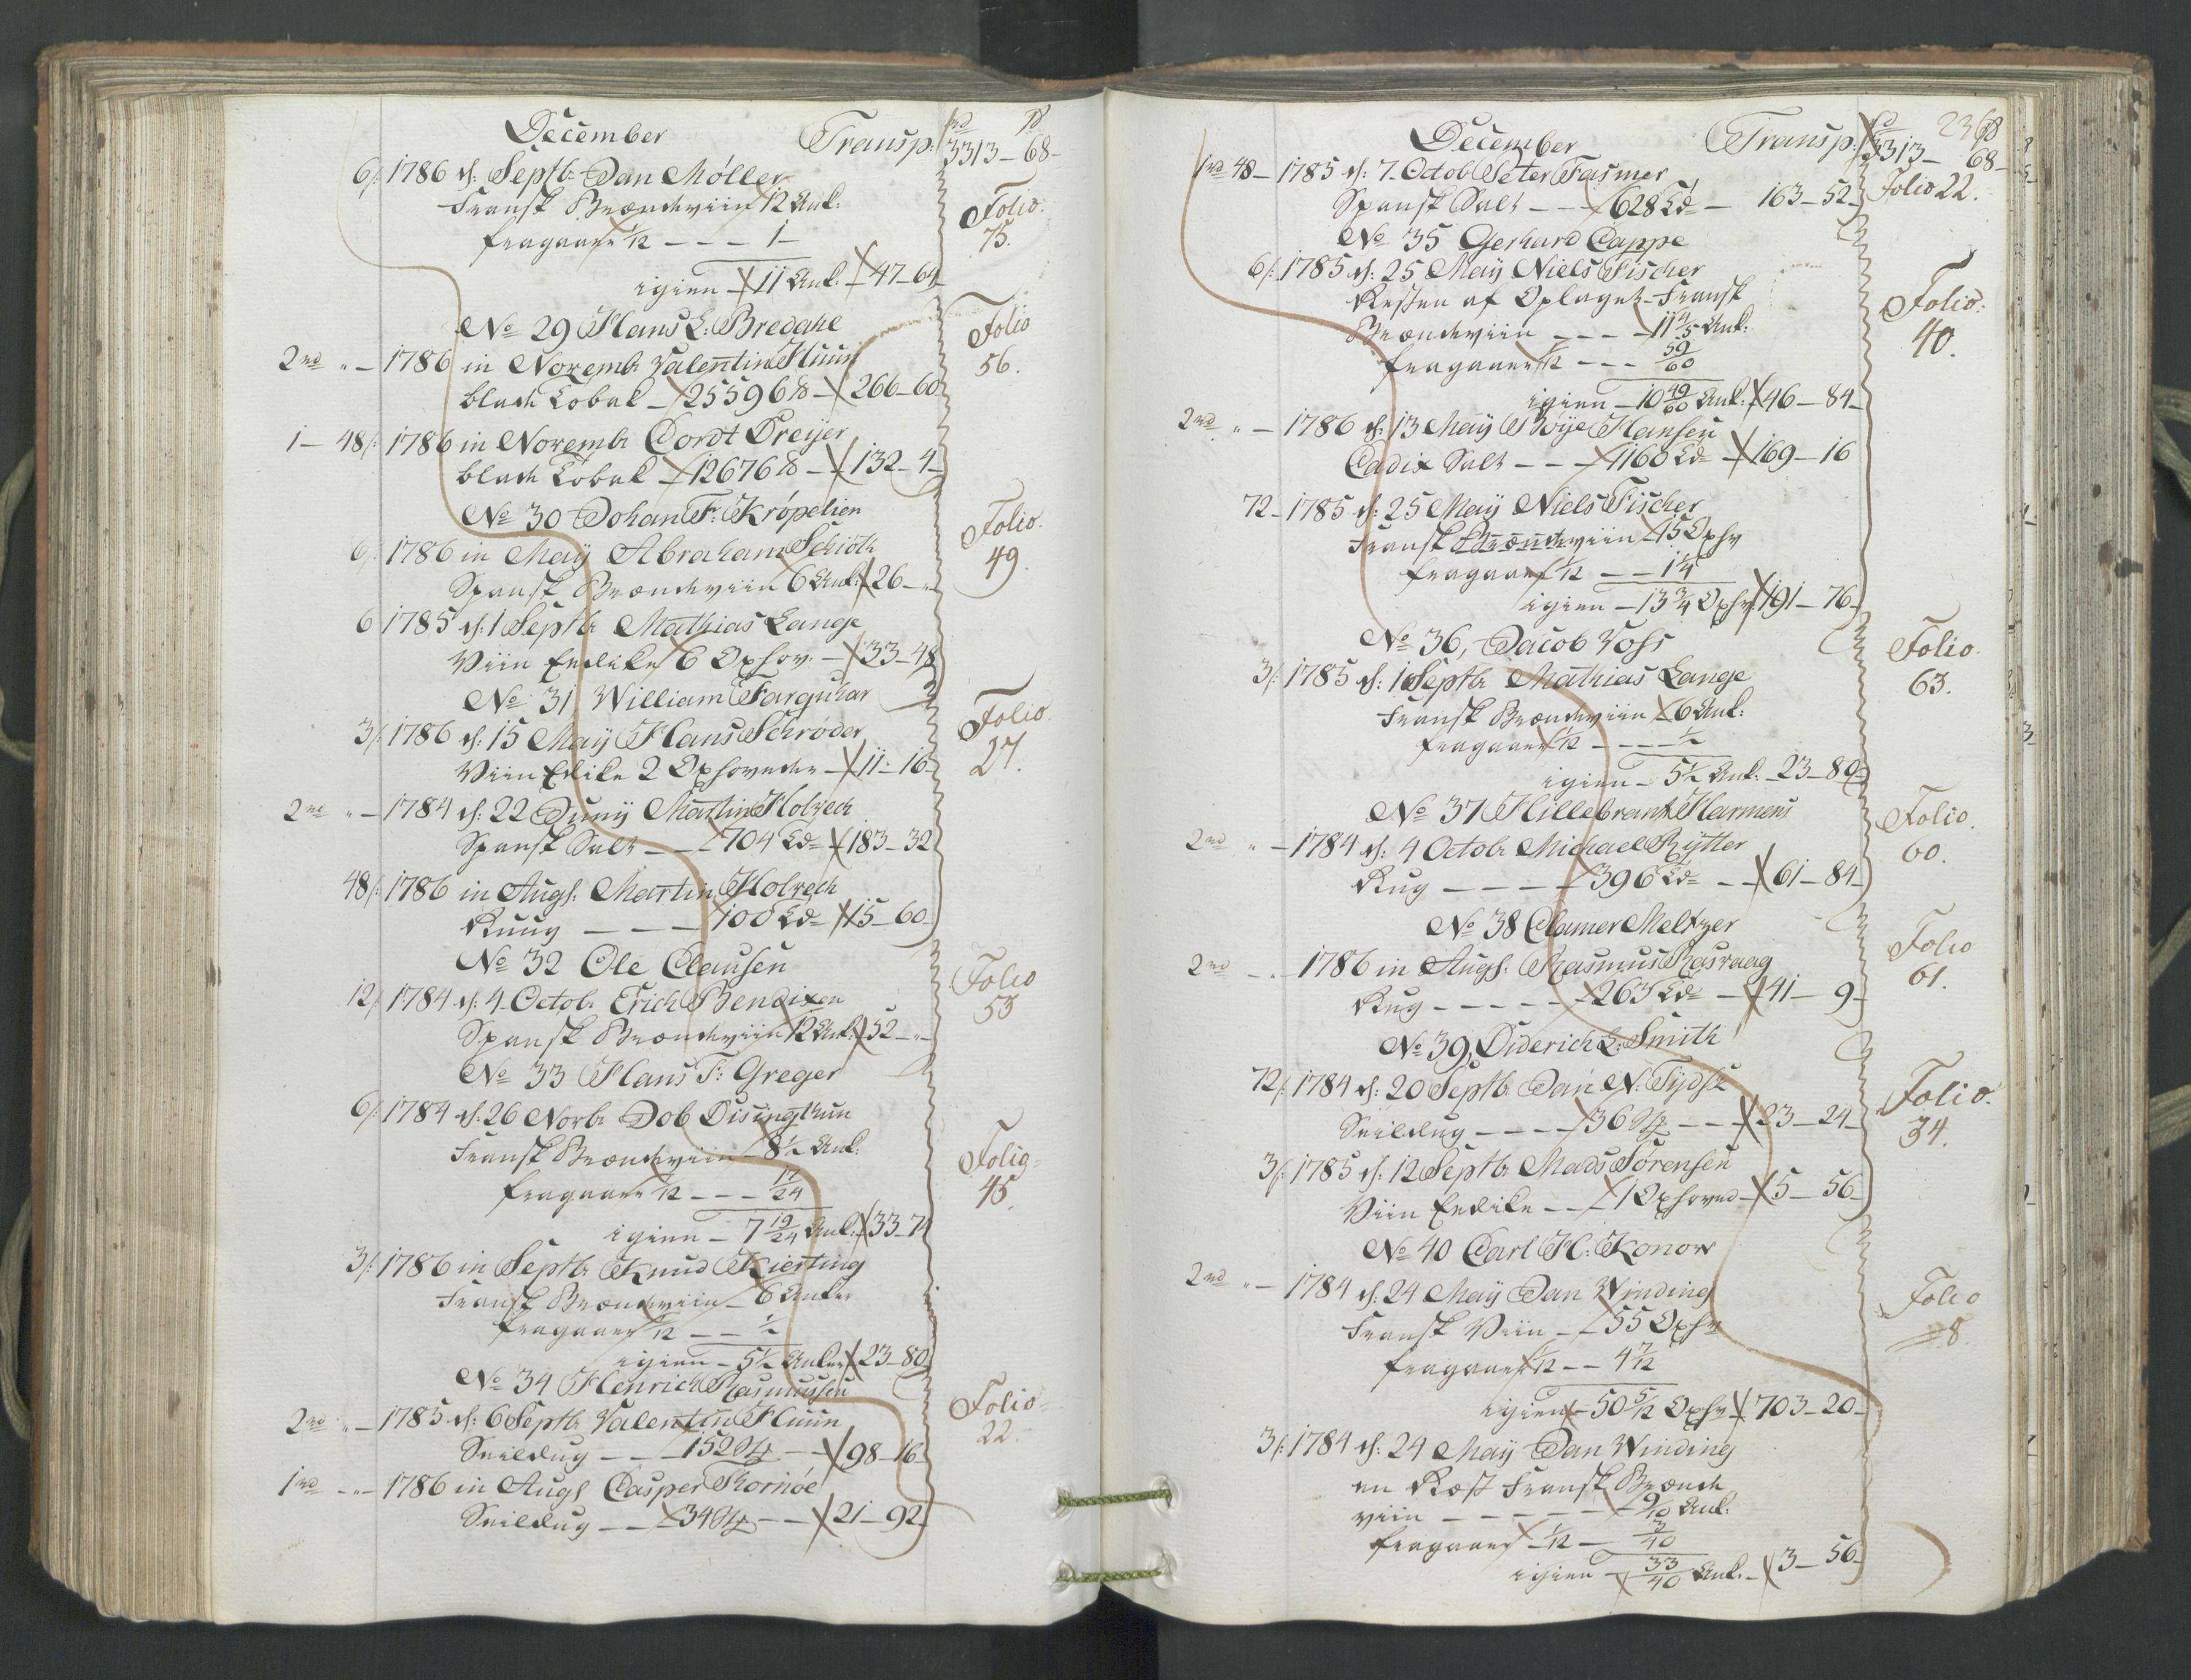 December Transp: rd ß
3313-68-
6/: 1786 d: Septb: Dan Møller
Fransk Brændeviin 12 Ank:
Folio:
75.
fragaaer 1/12 - - - 1 -
igien - 11 Ank: - 47-64
No 29 Hans L: Bredahl
Folio
56.
2rd " - 1786 in Novemb: Valentin Huun
blade Tobak - 25596 ℔ - 266-60
1 - 48/: 1786 in Novemb: Cordt Dreyer
blade Tobak - 12676 ℔ - 132-4-
No 30 Johan F: Krøpelien
Folio.
49.
6/: 1786 in Maÿ Abraham Schiøth
Spansk Brændeviin 6 Ank: 26-"-
6 1785 d: 1 Septb: Mathias Lange
Viin Eedike 6 Oxhov: - 33-48
No 31 William Farquhar
Folio.
27.
3/: 1786 d: 15 Maÿ Hans Schrøder
Viin Edike 2 Oxhoveder - 11-16
2rd " - 1784 d: 22 Junÿ Martin Holvech
Spansk Salt - - - 704 Td= 183-32
48/: 1786 in Augs: Martin Holvech
Ruug - - - 100 Td= 15-60
No 32 Ole Clausen
Folio
53
12/: 1784 d: 4 Octob: Erich Bendixen
Spansk Brændeviin 12 Ank: 52-"-
No 33 Hans F: Greger
6/: 1784 d: 26 Novb: Job Disingthun
Fransk Brændeviin - 8 1/2 Ank:
Folio=
45.
fragaaer 1/12 - - - 17/24
igien - 7 19/24 Ank: 33-74
3/: 1786 in Septb: Knud Kierting
Fransk Brændeviin - 6 Anker
fragaaer 1/12 - - 1/2
igien - 5 1/2 Anker 23-80
No 34 Henrich Rasmussen
Folio=
22.
2rd " - 1785 d: 6 Septb: Valentin Huun
Seildug - - - 152 St - - 98-16
1rd - " - 1786 in Augs: Casper Kornøe
Seildug - - - 34 St - - 21-92
December Transp: rd 236 ß
3313- 68-
1rd 48 - 1785 d: 7 Octob Peter Fasmer
Spansk Salt - - - 628 Td= - 163-52
Folio 22.
No 35 Gerhard Cappe
6/: 1785 d: 25 Maÿ Niels Fischer
Resten af Oplaget Fransk
Folio:
40.
Brændeviin - - - 11 4/5 Ank:
fragaaer 1/12 - - - 59/60
igien - 10 49/60 Ank: 46-84
2rd " - 1786 d: 13 Maÿ Bøÿe Hansen
Cadix Salt - - - 1160 Td= 169-16
72 - 1785 d: 25 Maÿ Niels Fischer
Fransk Brændeviin - 15 Oxhv
fragaaer 1/12 - - 1 1/4
igien - 13 3/4 Oxhv: 191-76
No 36, Jacob Vohs
Folio.
63.
3/: 1785 d: 1 Septb: Mathias Lange
Fransk Brændeviin 6 Ank:
fragaaer 1/12 - - - 1/2
igien - 5 1/2 Ank: - 23-80
No 37 Hillebrant Harmens
Folio.
60.
2rd " - 1784 d: 4 Octob: Michael Rÿtter
Rug - - - - 396 Td= - - 61-84
No 38 Clamer Meltzer
Folio
61.
2rd - . - 1786 in Augs: Rasmus Rasvaag
Rug - - - - - 263 Td= - 41-9
No 39, Diderich L: Smith
72/: 1784 d: 20 Septb: Dan N: Tÿdsk
Folio:
34.
Seildug - - - - 36 St - - 23-24
3/: 1785 d: 12 Septb: Mads Sørensen
Viin Eedike - - 1 Oxhoved - 5-56
No 40 Carl H: Konow
2rd " - 1784 d: 24 Maÿ Dan Winding
Folio
8.
Fransk Viin - - 55 Oxhv
fragaaer 1/12 - - 4 7/12
igien - 50 5/12 Oxhv 703-20
3/: 1784 d: 24 Maÿ Dan Winding
en Rest Fransk Brænde
viin - - - - - 9/10 Ank:
fragaaer - 1/12 - 3/40
igien - 33/40 Ank: - 3-56